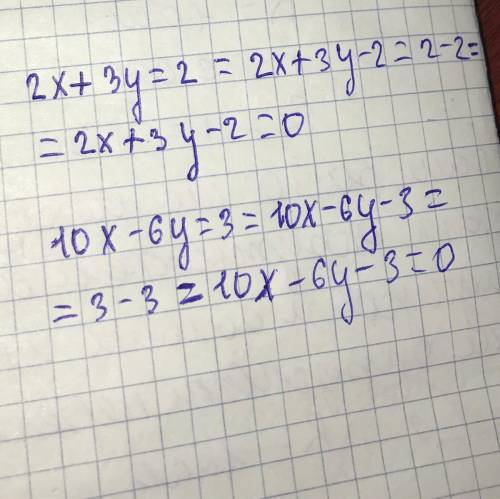 2x+3y=2 = 2x+3y-2=2-2=
=2x+3y-2=0
10x-6y=3=10x-6y-3=
=3-3=10x-6y-3=0